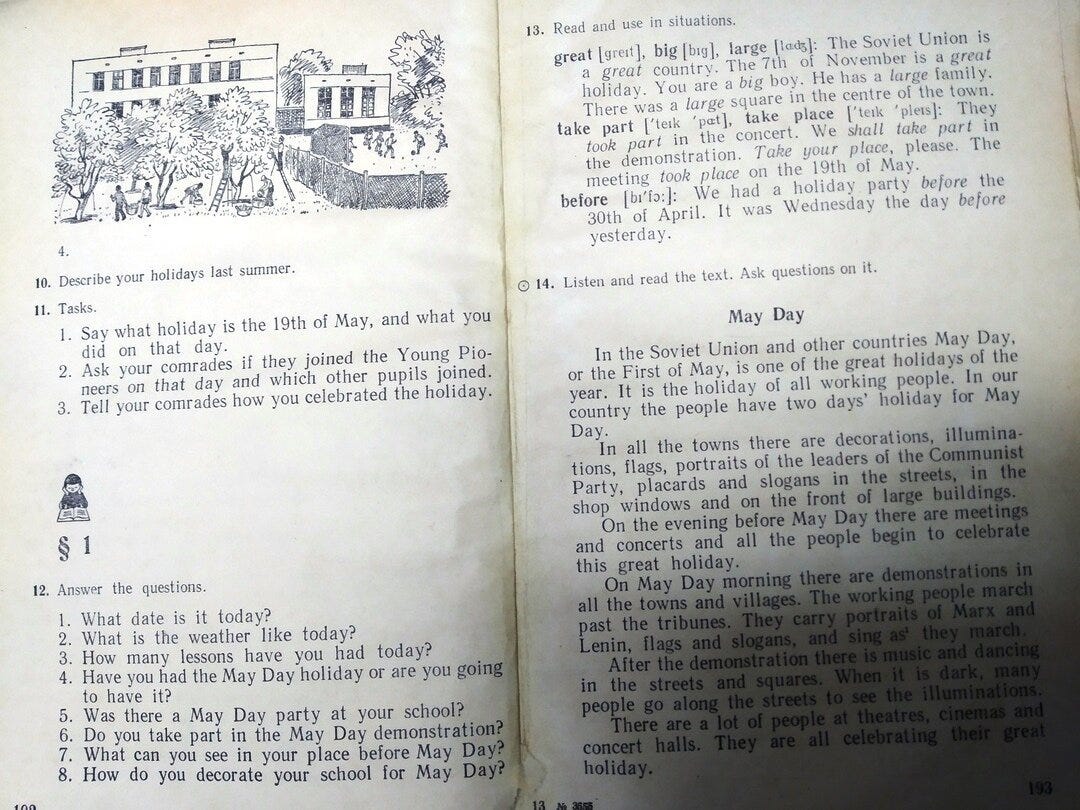 4.
10. Describe your holidays last summer.
11. Tasks.
1. Say what holiday is the 19th of May, and what you
did on that day.
2. Ask your comrades if they joined the Young Pio-
neers on that day and which other pupils joined.
3. Tell your comrades how you celebrated the holiday.
§ 1
12. Answer the questions.
1. What date is it today?
2. What is the weather like today?
3. How many lessons have you had today?
4. Have you had the May Day holiday or are you going
to have it?
5. Was there a May Day party at your school?
6. Do you take part in the May Day demonstration?
7. What can you see in your place before May Day?
8. How do you decorate your school for May Day?
13. Read and use in situations.
great [greɪt], big [bɪg], large [lɑːdʒ]: The Soviet Union is
a great country. The 7th of November is a great
holiday. You are a big boy. He has a large family.
There was a large square in the centre of the town.
take part ['teɪk 'pɑːt], take place ['teɪk 'pleɪs]: They
took part in the concert. We shall take part in
the demonstration. Take your place, please. The
meeting took place on the 19th of May.
before [bɪ'fɔː]: We had a holiday party before the
30th of April. It was Wednesday the day before
yesterday.
14. Listen and read the text. Ask questions on it.
May Day
In the Soviet Union and other countries May Day,
or the First of May, is one of the great holidays of the
year. It is the holiday of all working people. In our
country the people have two days' holiday for May
Day.
In all the towns there are decorations, illumina-
tions, flags, portraits of the leaders of the Communist
Party, placards and slogans in the streets, in the
shop windows and on the front of large buildings.
On the evening before May Day there are meetings
and concerts and all the people begin to celebrate
this great holiday.
On May Day morning there are demonstrations in
all the towns and villages. The working people march
past the tribunes. They carry portraits of Marx and
Lenin, flags and slogans, and sing as they march.
After the demonstration there is music and dancing
in the streets and squares. When it is dark, many
people go along the streets to see the illuminations.
There are a lot of people at theatres, cinemas and
concert halls. They are all celebrating their great
holiday.
13 № 3656
193